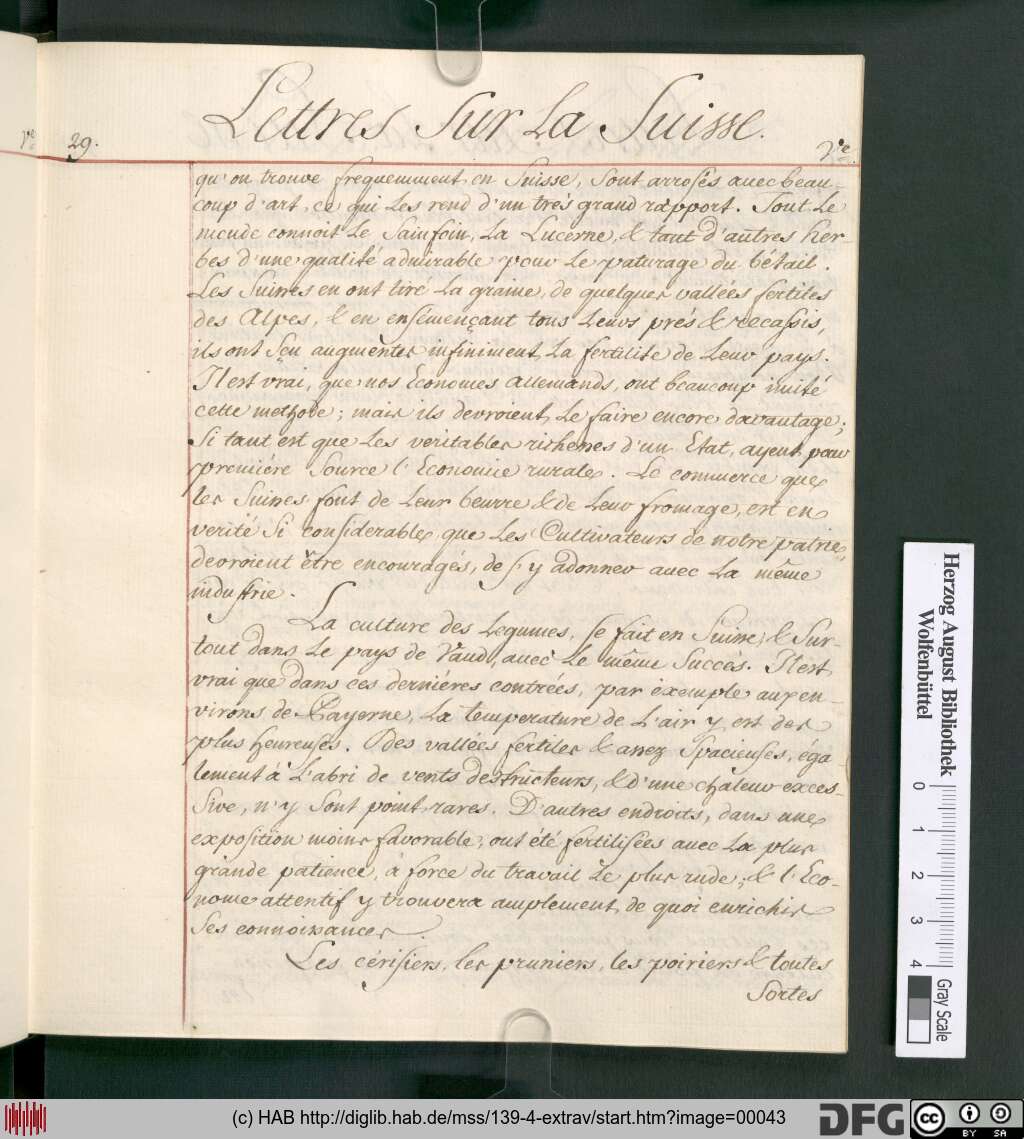 Lettres Sur La Suisse.
29.
qu'on trouve frequemment en Suisse, sont arrosés avec beau-
coup d'art, ce qui Les rend d'un trés grand rapport. Tout Le
monde connoit Le Sainfoin, La Lucerne, & tant d'autres her-
bes d'une qualité admirable pour Le paturage du bétail.
Les Suisses en ont tiré La graine, de quelques vallées fertiles
des Alpes, & en ensémençant tous Leurs prés & recassis,
ils ont sçu augmenter infiniment La fertilité de Leur pays.
Il est vrai, que nos Economes allemands, ont beaucoup imité
cette methode; mais ils devroient Le faire encore davantage;
Si tant est que Les veritables richesses d'un Etat, ayent pour
premiére Source l'Economie rurale. Le commerce que
les Suisses font de Leur beurre & de Leur fromage, est en
verité Si considerable, que Les Cultivateurs de notre patrie
devroient être encouragés, de s'y adonner avec La même
industrie.
La culture des Legumes, se fait en Suisse, & Sur-
tout dans Le pays de Vaud, avec Le même Succès. Il est
vrai que dans ces derniéres contrées, par exemple aux en-
virons de Payerne, La temperature de L'air y est des
plus heureuses. Des vallées fertiles & assez Spacieuses, éga-
lement à L'abri de vents destructeurs, & d'une chaleur exces-
Sive, n'y Sont point rares. D'autres endroits, dans une
exposition moins favorable, ont été fertilisées avec La plus
grande patience, à force du travail Le plus rude; & l'Eco-
nome attentif y trouvera amplement de quoi enrichir
Ses connoissances.
Les cérisiers, les pruniers, les poiriers & toutes
Sortes
Herzog August Bibliothek
Wolfenbüttel
0 1 2 3 4
Gray Scale
(c) HAB http://diglib.hab.de/mss/139-4-extrav/start.htm?image=00043
DFG
cc BY SA